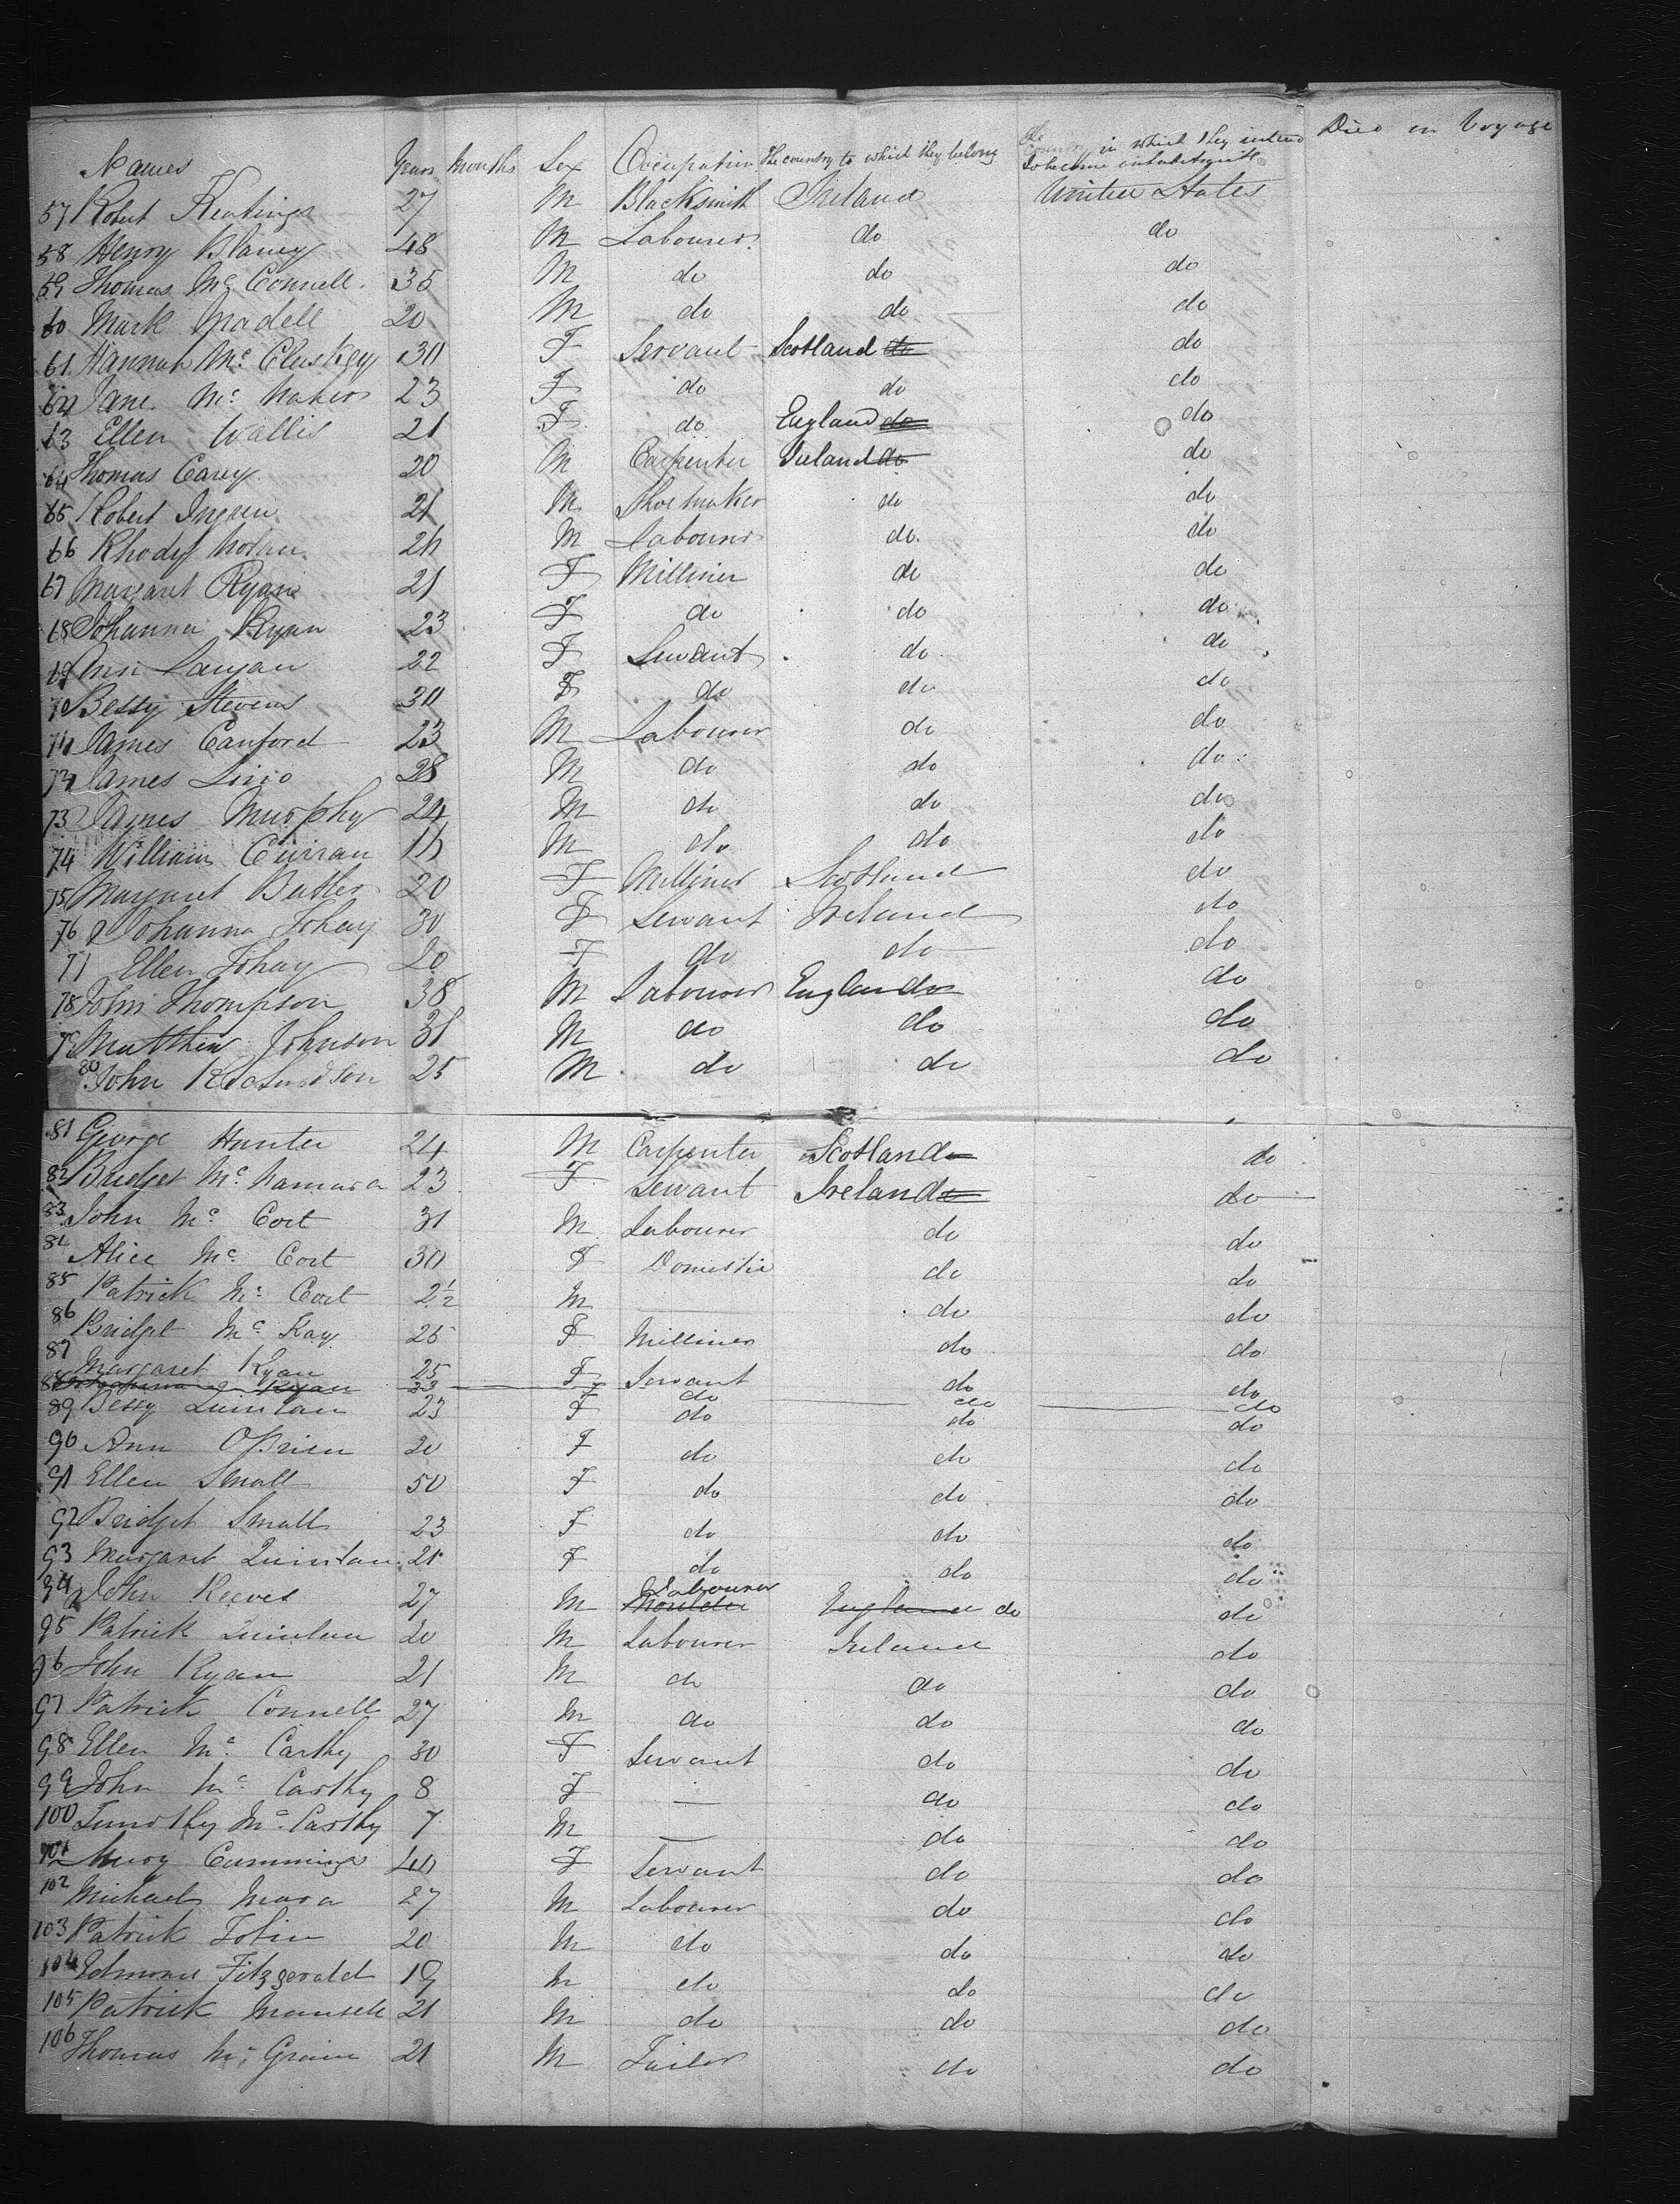 Names Years Months Sex Occupation The country to which they belong The Country in which they intend to become inhabitants Died on Voyage
57 Robert Keatinge 27 M Blacksmith Ireland United States
58 Henry Blaney 48 M Labourer do do
59 Thomas Mc Connell 35 M do do do
60 Mark 20 M do do do
61 Hannah Mc Cluskey 30 F Servant Scotland do do
62 Jane Mc 23 F do do do
63 Ellen Wallis 21 F do England do do
64 Thomas Carey 20 M Carpenter Ireland do do
65 Robert 21 M Shoemaker do do
66 Rhody Nolan 20 M Labourer do do
67 Margaret Ryan 21 F Milliner do do
68 Johanna Ryan 23 F do do do
69 Ann 22 F Servant do do
70 Bessy Stevens 30 F do do do
71 James Canford 23 M Labourer do do
72 James 28 M do do do
73 James Murphy 24 M do do do
74 William Curran M do do do
75 Margaret Butler 20 F Milliner Scotland do
76 Johanna Fohey 30 F Servant Ireland do
77 Ellen Fohay 20 F do do do
78 John Thompson 38 M Labourer England do
79 Matthew Johnson 31 M do do do
80 John 25 M do do do
81 George Hunter 24 M Carpenter Scotland do
82 Bridget Mc Namara 23 F Servant Ireland do
83 John Mc Cort 31 M Labourer do do
84 Alice Mc Cort 30 F Domestic do do
85 Patrick Mc Cort 2½ M — do do
86 Bridget Mc Kay 25 F Milliner do do
87 Margaret Ryan 25 F Servant do do
88 Johanna Ryan 23 F do do do
89 Bessy Quinlan 23 F do do do
90 Ann OBrien 20 F do do do
91 Ellen Small 50 F do do do
92 Bridget Small 23 F do do do
93 Margaret Quinlan 21 F do do do
94 John Reeves 27 M Moulder Labourer England do do
95 Patrick Quinlan 20 M Labourer Ireland do
96 John Ryan 21 M do do do
97 Patrick Connell 27 M do do do
98 Ellen Mc Carthy 30 F Servant do do
99 John Mc Carthy 8 F — do do
100 Timothy Mc Carthy 7 M — do do
101 Mary Cummings 40 F Servant do do
102 Michael Mara 27 M Labourer do do
103 Patrick Tobin 20 M do do do
104 Edmond Fitzgerald 19 M do do do
105 Patrick Mansell 21 M do do do
106 Thomas Mc Grain 21 M Tailor do do